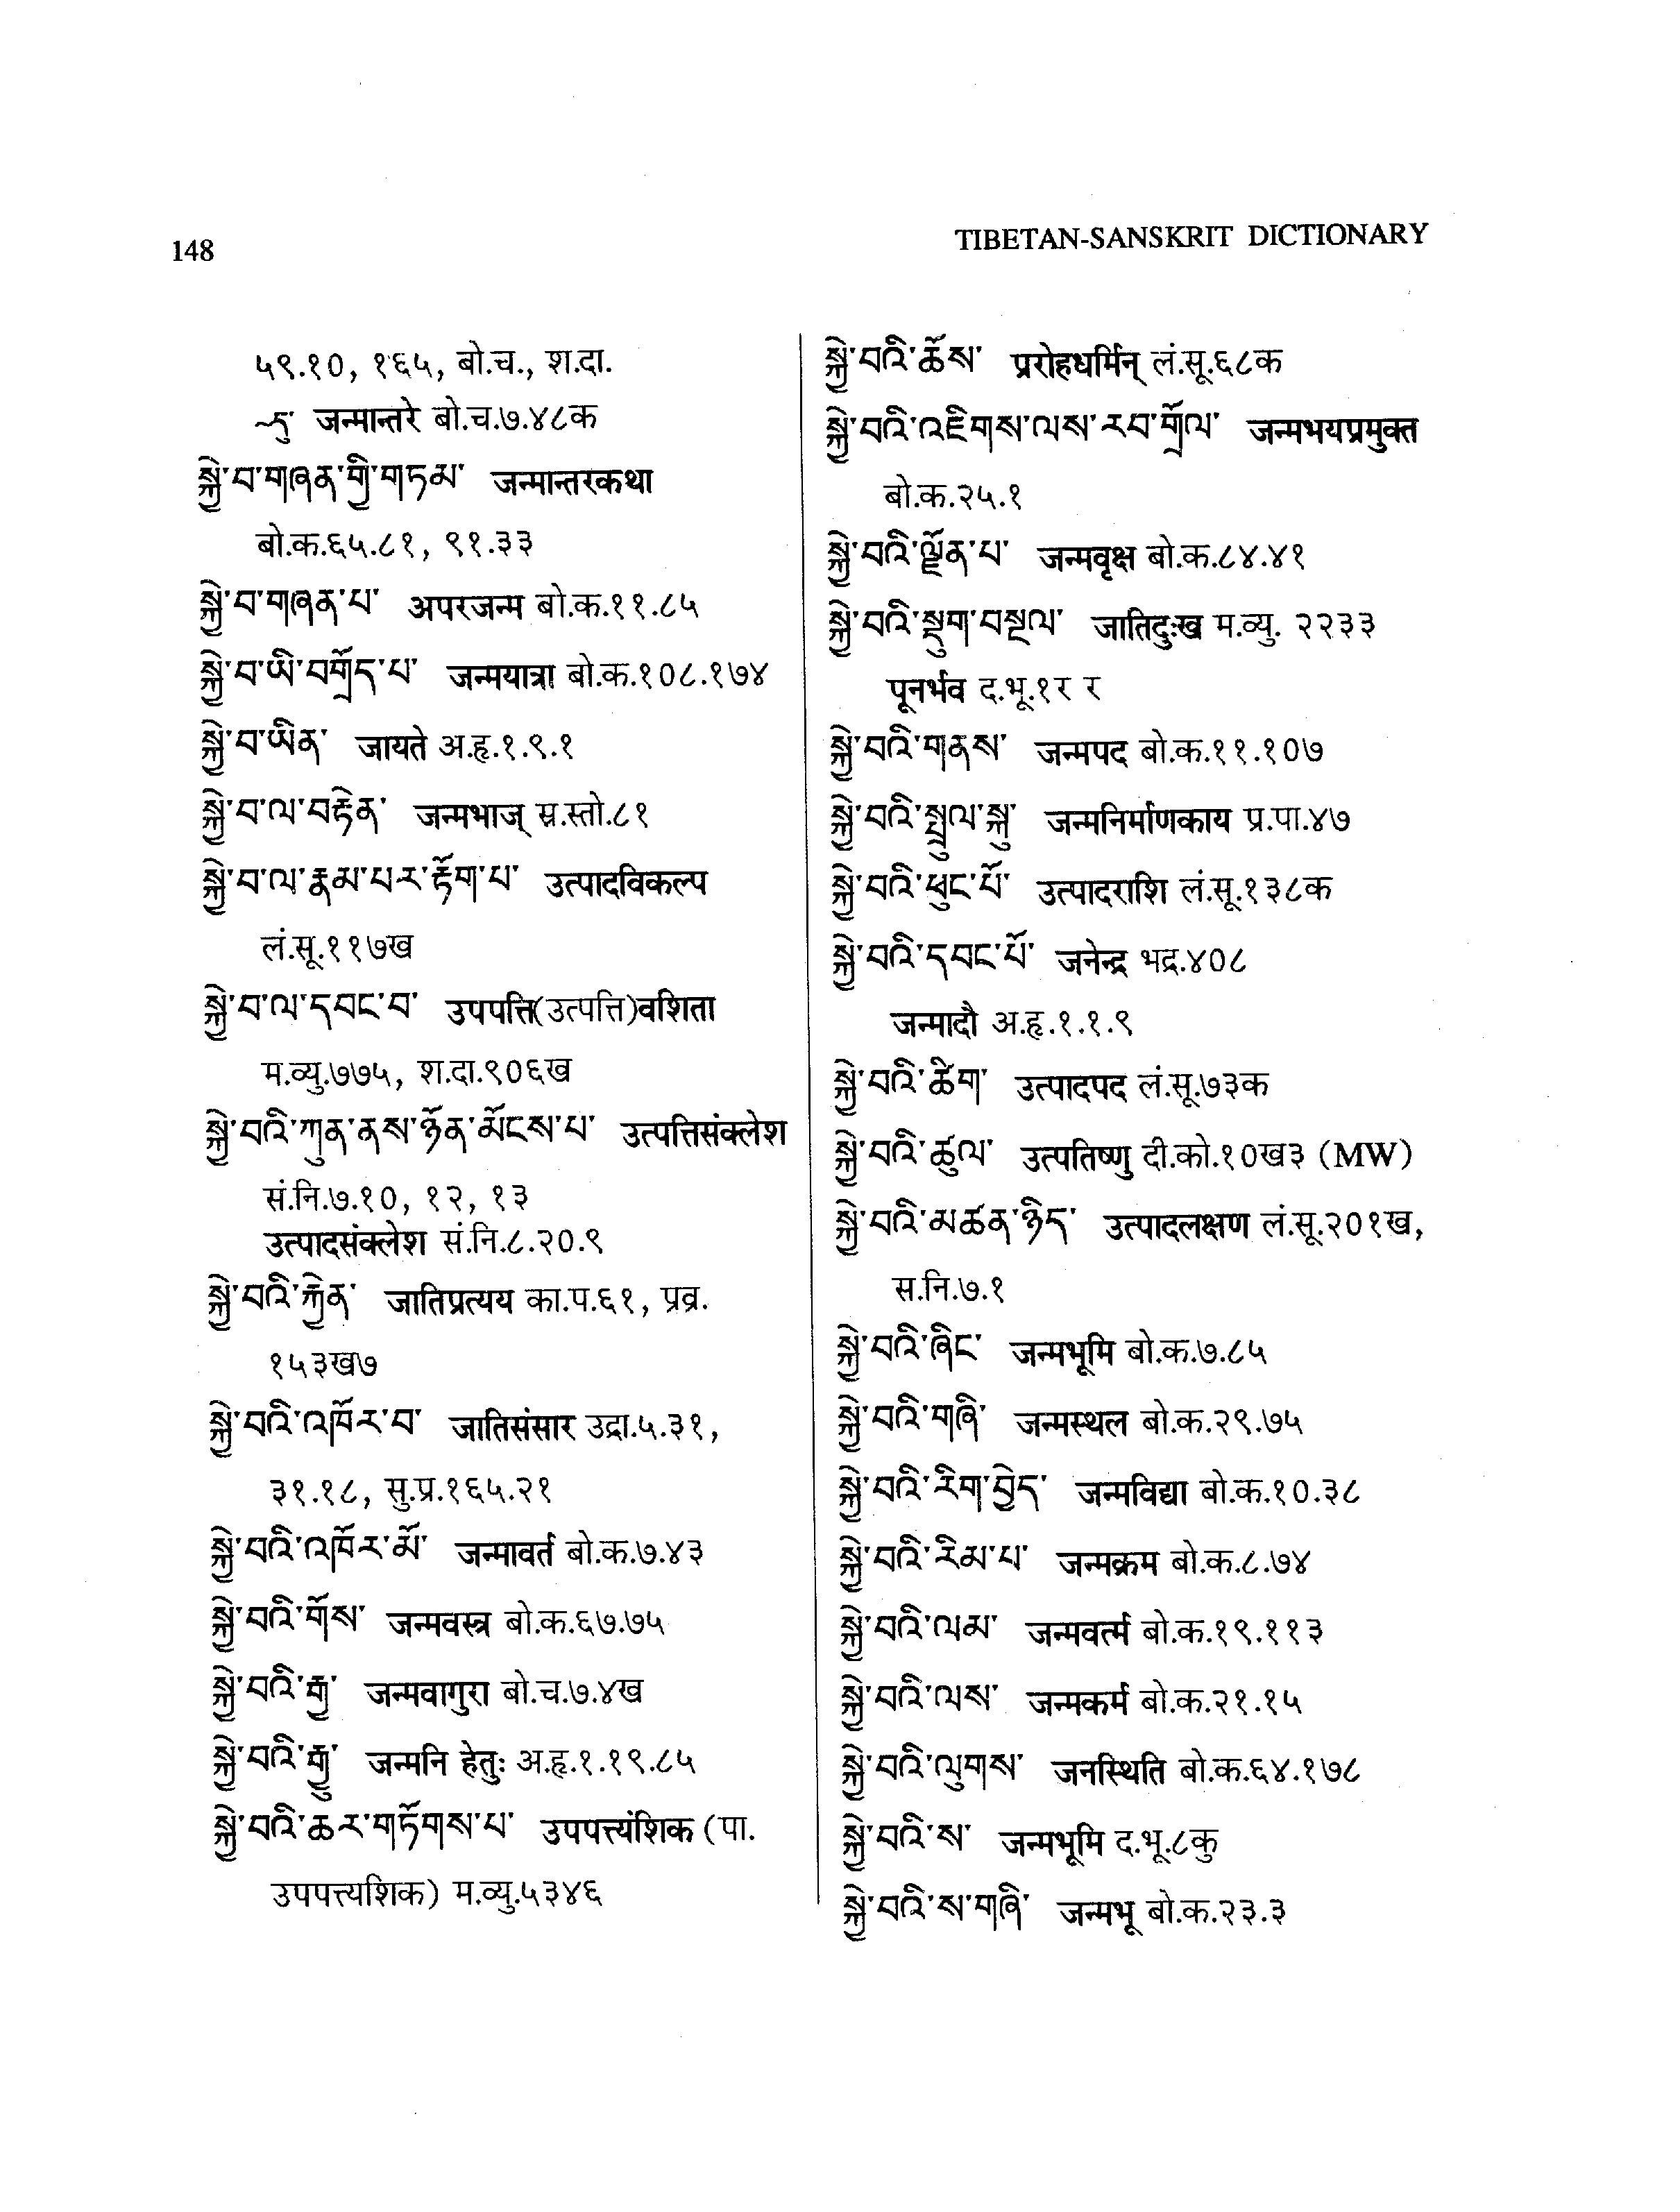 148
TIBETAN-SANSKRIT DICTIONARY
५९.१०, १६५, बो.च., श.दा.
~དུ་ जन्मान्तरे बो.च.७.४८क
སྐྱེ་བ་གཞན་གྱི་གཏམ་ जन्मान्तरकथा
बो.क.६५.८१, ९१.३३
སྐྱེ་བ་གཞན་པ་ अपरजन्म बो.क.११.८५
སྐྱེ་བ་ཡི་བགྲོད་པ་ जन्मयात्रा बो.क.१०८.१७४
སྐྱེ་བ་ཡིན་ जायते अ.हृ.१.९.१
སྐྱེ་བ་ལ་བརྟེན་ जन्मभाज् स्र.स्तो.८१
སྐྱེ་བ་ལ་རྣམ་པར་རྟོག་པ་ उत्पादविकल्प
लं.सू.११७ख
སྐྱེ་བ་ལ་དབང་བ་ उपपत्ति(उत्पत्ति)वशिता
म.व्यु.७७५, श.दा.९०६ख
སྐྱེ་བའི་ཀུན་ནས་ཉོན་མོངས་པ་ उत्पत्तिसंक्लेश
सं.नि.७.१०, १२, १३
उत्पादसंक्लेश सं.नि.८.२०.९
སྐྱེ་བའི་རྐྱེན་ जातिप्रत्यय का.प.६१, प्रव्र.
१५३ख७
སྐྱེ་བའི་འཁོར་བ་ जातिसंसार उद्रा.५.३१,
३१.१८, सु.प्र.१६५.२१
སྐྱེ་བའི་འཁོར་མོ་ जन्मावर्त बो.क.७.४३
སྐྱེ་བའི་གོས་ जन्मवस्त्र बो.क.६७.७५
སྐྱེ་བའི་རྒྱ་ जन्मवागुरा बो.च.७.४ख
སྐྱེ་བའི་རྒྱུ་ जन्मनि हेतुः अ.हृ.१.१९.८५
སྐྱེ་བའི་ཆར་གཏོགས་པ་ उपपत्त्यंशिक (पा.
उपपत्त्यशिक) म.व्यु.५३४६
སྐྱེ་བའི་ཆོས་ प्ररोहधर्मिन् लं.सू.६८क
སྐྱེ་བའི་འཇིགས་ལས་རབ་གྲོལ་ जन्मभयप्रमुक्त
बो.क.२५.१
སྐྱེ་བའི་ལྗོན་པ་ जन्मवृक्ष बो.क.८४.४१
སྐྱེ་བའི་སྡུག་བསྔལ་ जातिदुःख म.व्यु. २२३३
पूनर्भव द.भू.१र र
སྐྱེ་བའི་གནས་ जन्मपद बो.क.११.१०७
སྐྱེ་བའི་སྤྲུལ་སྐུ་ जन्मनिर्माणकाय प्र.पा.४७
སྐྱེ་བའི་ཕུང་པོ་ उत्पादराशि लं.सू.१३८क
སྐྱེ་བའི་དབང་པོ་ जनेन्द्र भद्र.४०८
जन्मादौ अ.हृ.१.१.९
སྐྱེ་བའི་ཚིག་ उत्पादपद लं.सू.७३क
སྐྱེ་བའི་ཚུལ་ उत्पतिष्णु दी.को.१०ख३ (MW)
སྐྱེ་བའི་མཚན་ཉིད་ उत्पादलक्षण लं.सू.२०१ख,
स.नि.७.१
སྐྱེ་བའི་ཞིང་ जन्मभूमि बो.क.७.८५
སྐྱེ་བའི་གཞི་ जन्मस्थल बो.क.२९.७५
སྐྱེ་བའི་རིག་བྱེད་ जन्मविद्या बो.क.१०.३८
སྐྱེ་བའི་རིམ་པ་ जन्मक्रम बो.क.८.७४
སྐྱེ་བའི་ལམ་ जन्मवर्त्म बो.क.१९.११३
སྐྱེ་བའི་ལས་ जन्मकर्म बो.क.२१.१५
སྐྱེ་བའི་ལུགས་ जनस्थिति बो.क.६४.१७८
སྐྱེ་བའི་ས་ जन्मभूमि द.भू.८कु
སྐྱེ་བའི་ས་གཞི་ जन्मभू बो.क.२३.३